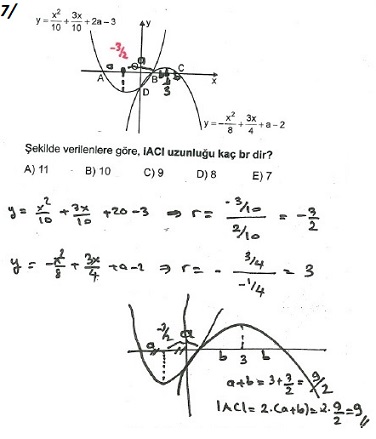 7/
y = x²/10 + 3x/10 + 2a - 3
y
-3/2
a a
A O B b b C x
D 3
y = - x²/8 + 3x/4 + a - 2
Şekilde verilenlere göre, IACI uzunluğu kaç br dir?
A) 11 B) 10 C) 9 D) 8 E) 7
y = x²/10 + 3x/10 + 2a - 3 ⇒ r = (-3/10)/(2/10) = -3/2
y = -x²/8 + 3x/4 + a - 2 ⇒ r = - (3/4)/(-1/4) = 3
-3/2
a a
b 3 b
a + b = 3 + 3/2 = 9/2
IACI = 2.(a+b) = 2. 9/2 = 9 //